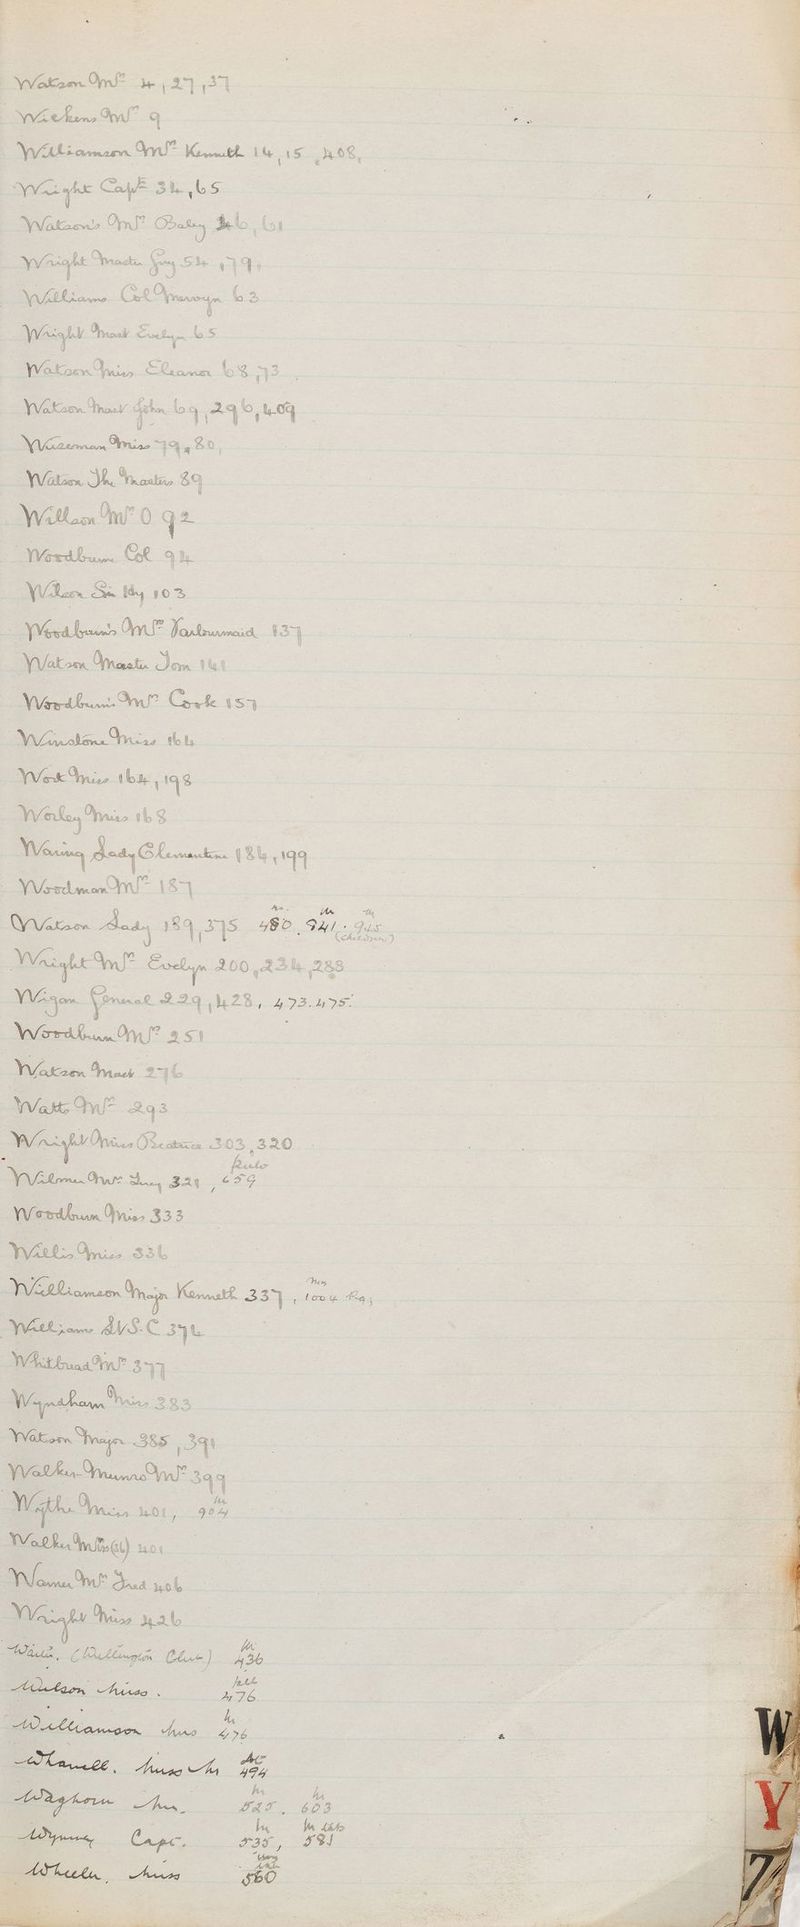 Watson Mrs 4, 27, 37
Wickens Mrs 9
Williamson Mrs Kenneth 14, 15, 408,
Wright Capt 34, 65
Watson's Mrs Baby 46, 61
Wright Master Guy 54, 79,
Williams Col Mervyn 63
Wright Mast Evelyn 65
Watson Miss Eleanor 68, 73
Watson Mast John 69, 296, 409
Wiseman Miss 79, 80,
Watson The Masters 89
Willson Mrs O 92
Woodburn Col 94
Wilson Sir Hy 103
Woodburn's Mrs Parlourmaid 137
Watson Master Tom 141
Woodburn's Mrs Cook 157
Winstone Miss 164
Wort Miss 164, 198
Worley Miss 168
Waring Lady Clementine 184, 199
Woodman Mrs 187
Watson Lady 189, 375 480. 941. 945
(children)
Wright Mrs Evelyn 200, 234, 283
Wigan General 229, 428, 473. 475.
Woodburn Mrs 251
Watson Mast 276
Watts Mrs 293
Wright Miss Beatrice 303, 320
Wilmer Mrs 321, 659
Woodburn Miss 333
Willis Miss 336
Williamson Major Kenneth 337, 1004
Williams S.V.S.C 374
Whitbread Mrs 377
Wyndham Miss 383
Watson Major 385, 391
Walker-Munro Mrs 399
Wythe Miss 401, 904
Walker Miss 401
Warner Mrs Fred 406
Wright Miss 426
(Wellington Club) 436
Wilson Miss. 476
Williamson Mrs 476
Miss 494
Waghorn Mr. 525. 603
Capt. 535, 581
Wheeler. Miss 560
W
Y
Z